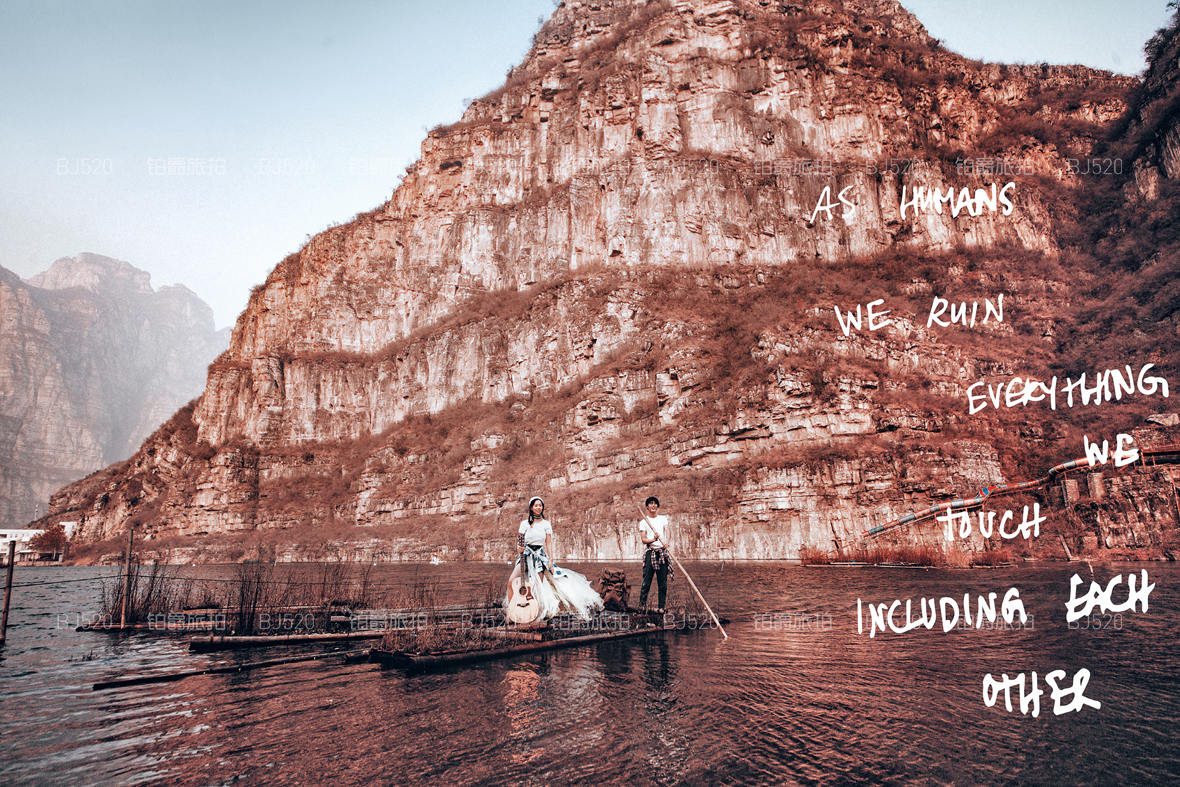 BJ520 铂爵旅拍 BJ520 铂爵旅拍 BJ520 铂爵旅拍 BJ520 铂爵旅拍 BJ520 铂爵旅拍 BJ520
AS HUMANS
WE RUIN
EVERYTHING
WE
TOUCH
INCLUDING EACH
BJ520 铂爵旅拍 BJ520 铂爵旅拍 BJ520 铂爵旅拍 BJ520 铂爵旅拍 BJ520 铂爵旅拍 BJ520
OTHER